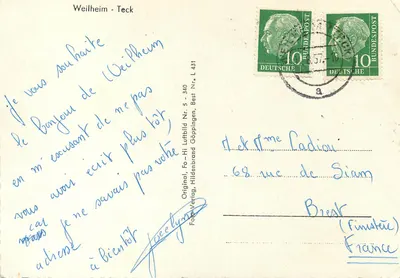 Weilheim - Teck
je vous souhaite
le bonjour de Weilheim
en m'excusant de ne pas
vous avoir écrit plus tôt,
car
mais je ne savais pas votre
adresse
à bientôt
Jocelyne
Original, Fo-Hi Luftbild Nr. S - 340
Foto-Verlag, Hildenbrand Göppingen, Best Nr. L 431
10
DEUTSCHE
BUNDESPOST
10
DEUTSCHE
BUNDESPOST
a
M et Mme Cadiou
68 rue de Siam
Brest
(Finistère)
France